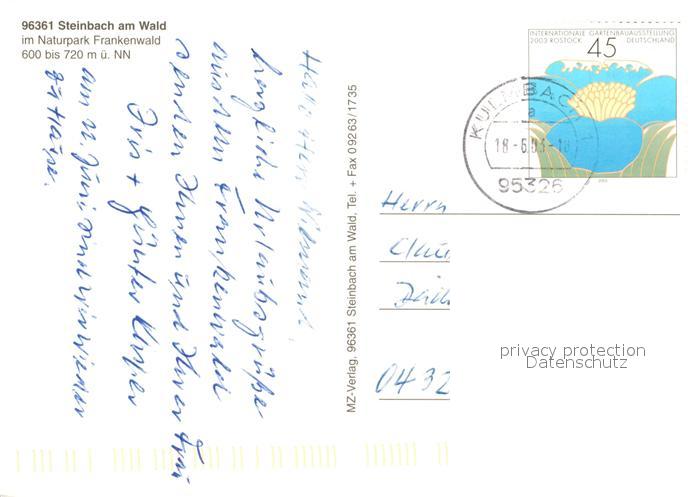 96361 Steinbach am Wald
im Naturpark Frankenwald
600 bis 720 m ü. NN
herzliche Urlaubsgrüße
aus dem Frankenwald
senden Ihnen und Ihrer Frau
Iris + Günter
am 21. Juni sind wir wieder
zu Hause.
MZ-Verlag, 96361 Steinbach am Wald, Tel. + Fax 09263/1735
INTERNATIONALE GARTENBAUAUSSTELLUNG
2003 ROSTOCK DEUTSCHLAND
45
KULMBACH 1
a
18-6.03-18
95326
Herrn
Clau
0432
privacy protection
Datenschutz